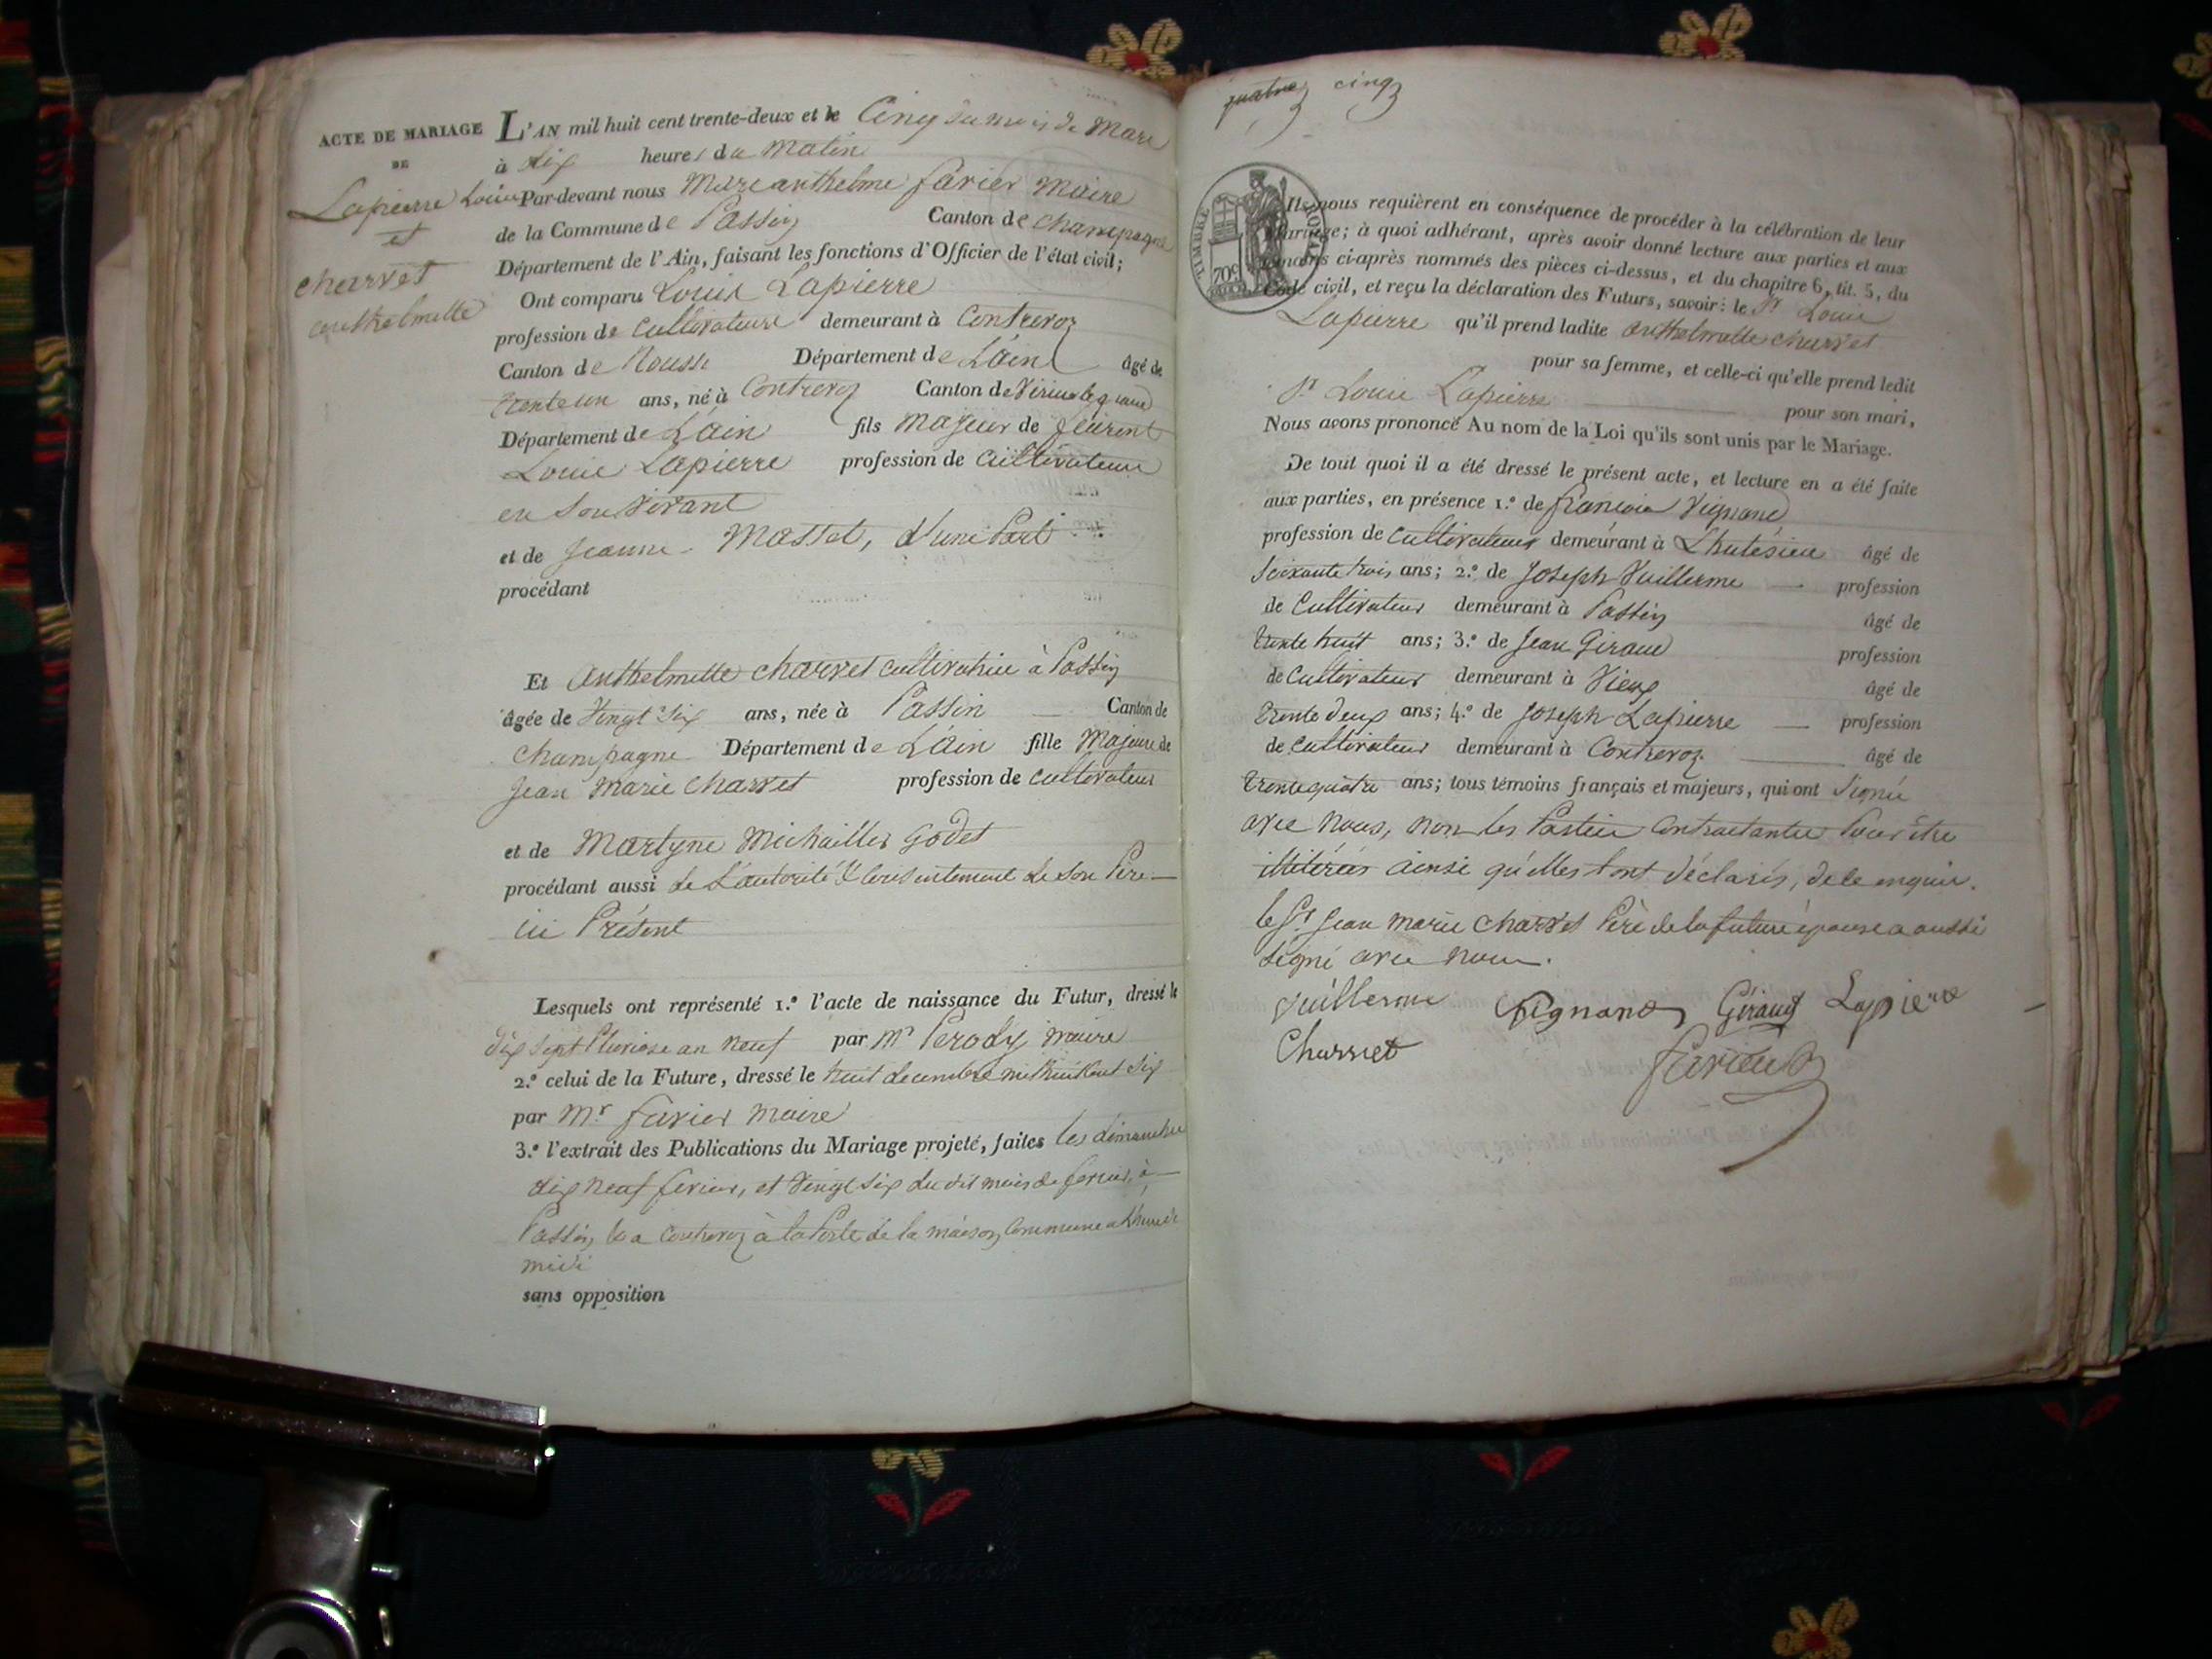 ACTE DE MARIAGE
DE
Lapierre Louis
et
charvet
anthelmette
L'AN mil huit cent trente-deux et le Cinq du mois de Mars
à dix heures du Matin
Par-devant nous Marc anthelme favier Maire
de la Commune de Passin Canton de champagne
Département de l'Ain, faisant les fonctions d'Officier de l'état civil;
Ont comparu Louis Lapierre
profession de Cultivateur demeurant à Contrevoz
Canton de Département de L'ain âgé de
trente un ans, né à Contrevoz Canton de Virieu le grand
Département de L'ain fils Majeur de
Louis Lapierre profession de Cultivateur
en Son Vivant
et de Jeanne Masset, d'une Part
procédant
Et Anthelmette charvet cultivatrice à Passin
âgée de Vingt Six ans, née à Passin Canton de
Champagne Département de L'Ain fille Majeure de
Jean Marie Charvet profession de Cultivateur
et de Martyne Michaillet Godet
procédant aussi de L'autorité & Consentement de Son Père
ici Présent
Lesquels ont représenté 1.º l'acte de naissance du Futur, dressé le
dix Sept Pluviose an neuf par Mr Perody maire
2.º celui de la Future, dressé le huit decembre mil huit Cent Six
par Mr favier Maire
3.º l'extrait des Publications du Mariage projeté, faites les dimanches
dix neuf fevrier, et Vingt Six du dit mois de fevrier, à
Passin, & a Contrevoz à la Porte de la maison Commune a L'heure de
midi
sans opposition
quatre cinq
TIMBRE ROYAL
70c
Ils nous requièrent en conséquence de procéder à la célébration de leur
mariage; à quoi adhérant, après avoir donné lecture aux parties et aux
témoins ci-après nommés des pièces ci-dessus, et du chapitre 6, tit. 5, du
Code civil, et reçu la déclaration des Futurs, savoir: le Sr Louis
Lapierre qu'il prend ladite anthelmette charvet
pour sa femme, et celle-ci qu'elle prend ledit
Sr Louis Lapierre pour son mari,
Nous avons prononcé Au nom de la Loi qu'ils sont unis par le Mariage.
De tout quoi il a été dressé le présent acte, et lecture en a été faite
aux parties, en présence 1.º de francois Vignand
profession de Cultivateur demeurant à âgé de
Soixante trois ans; 2.º de Joseph Vuillerme profession
de Cultivateur demeurant à Passin âgé de
trente huit ans; 3.º de Jean Giraud profession
de Cultivateur demeurant à Vieux âgé de
trente deux ans; 4.º de Joseph Lapierre profession
de Cultivateur demeurant à Contrevoz âgé de
trente quatre ans; tous témoins français et majeurs, qui ont Signé
avec Nous, non les Parties Contractantes Pour être
illitérées ainsi qu'elles l'ont déclarés, de ce enquis.
le Sr Jean Marie Charvet Père de la future épouse a aussi
Signé avec nous.
Vuillerme Vignand Giraud Lapierre
Charvet favier